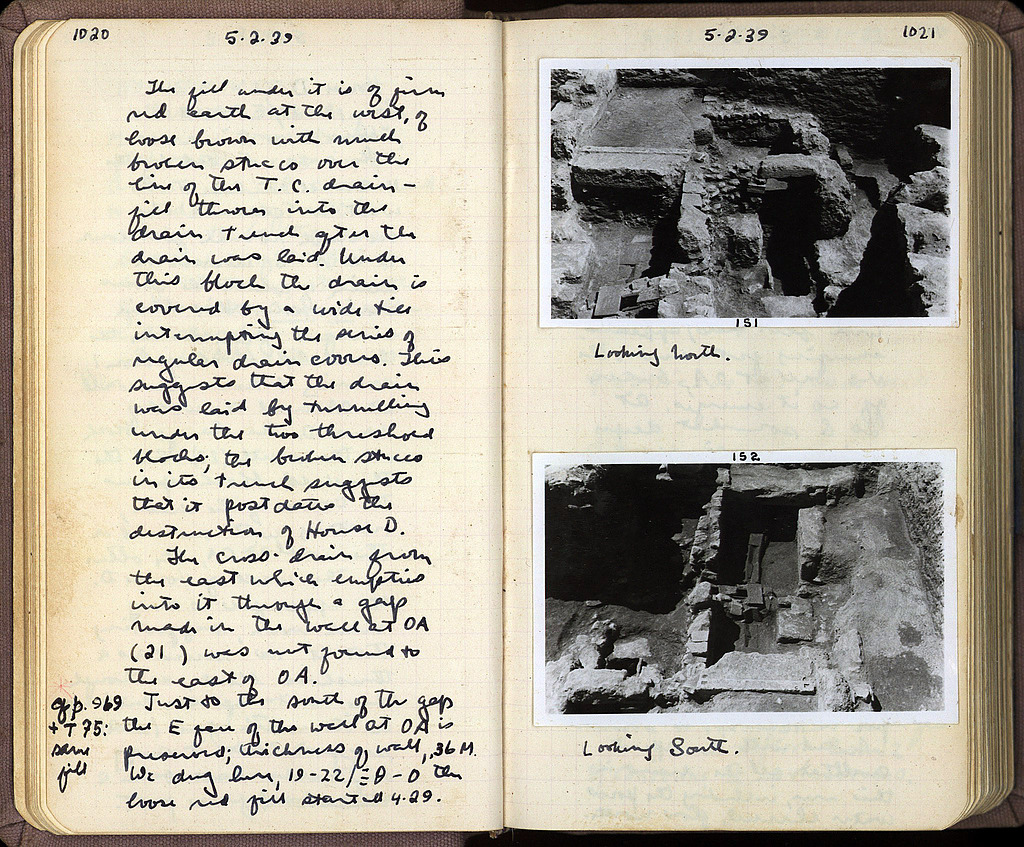 1020
5·2·39
The fill under it is of firm
red earth at the west, of
loose brown with much
broken stucco over the
line of the T.C. drain –
fill thrown into the
drain trench after the
drain was laid. Under
this block the drain is
covered by a wide tile
interrupting the series of
regular drain covers. This
suggests that the drain
was laid by tunnelling
under the two threshold
blocks; the broken stucco
in its trench suggests
that it postdates the
destruction of House D.
The cross-drain from
the east which empties
into it through a gap
made in the wall at OA
(21) was not found to
the east of OA.
Just to the south of the gap
the E face of the wall at OA is
preserved; thickness of wall, .36 M.
We dug here, 19-22/ΞΘ-O the
loose red fill started 4.29.
cf p. 969
+ T 75:
same
fill
5·2·39
1021
151
Looking North.
152
Looking South.